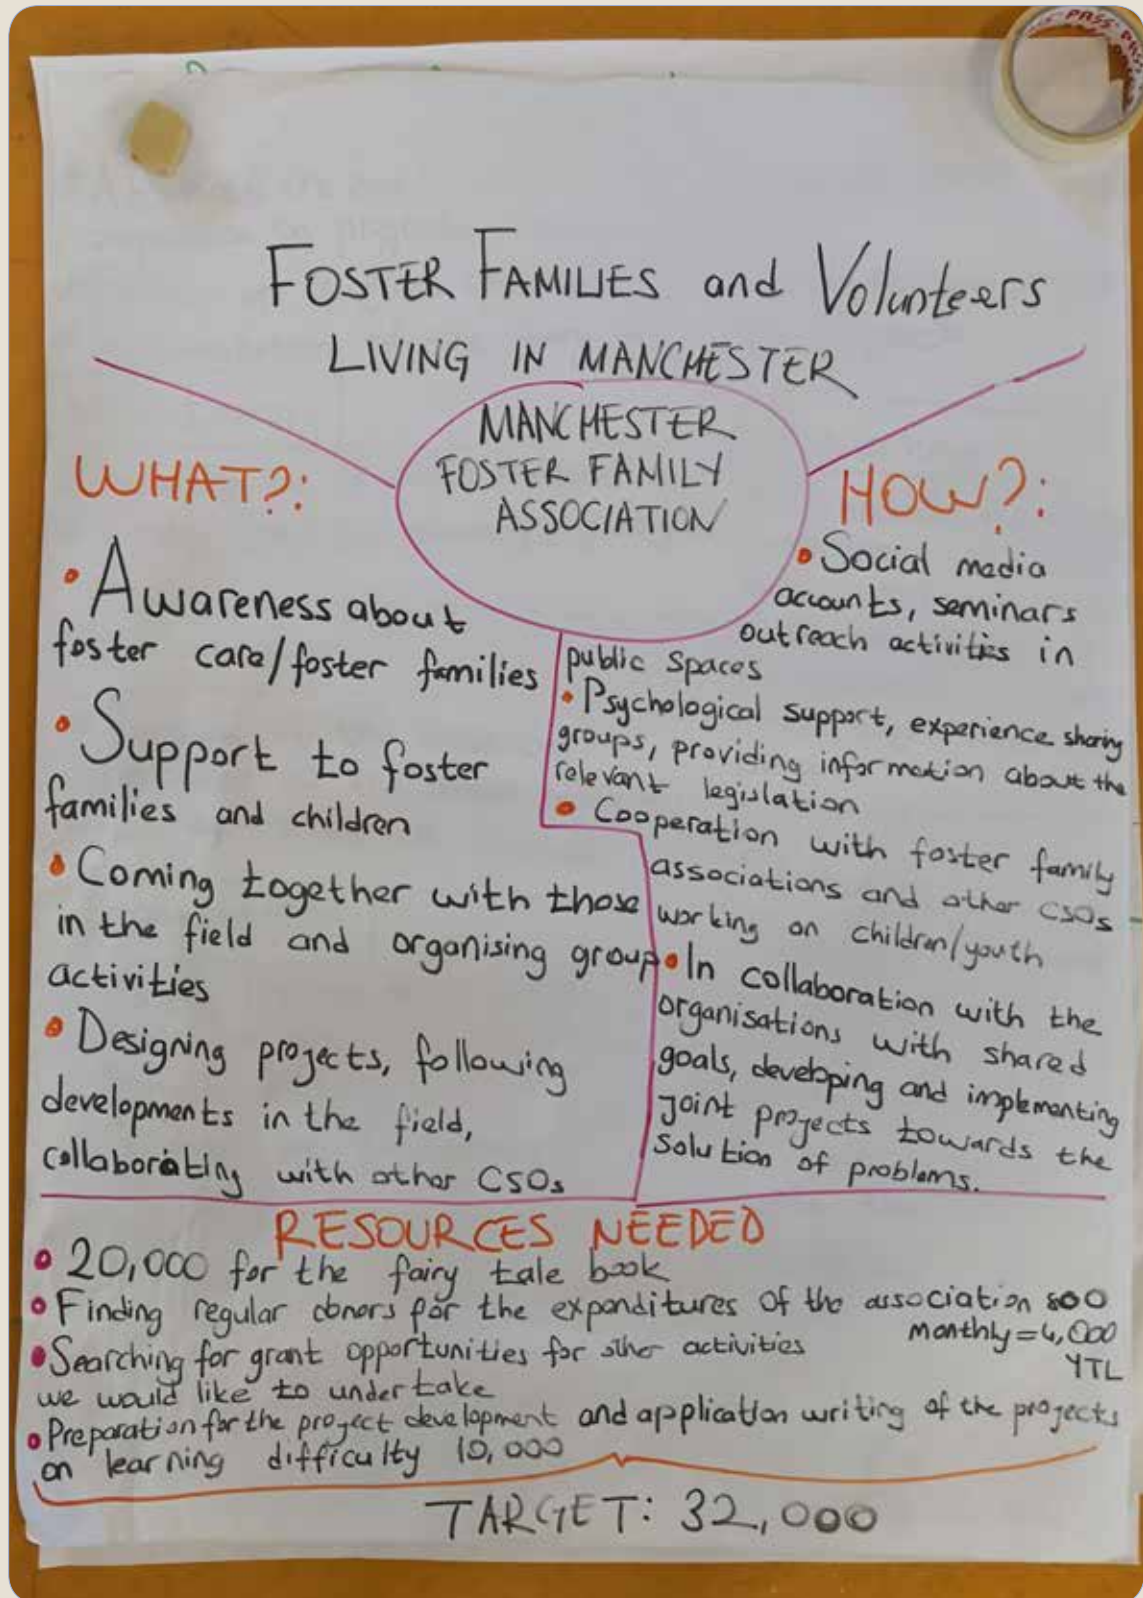 PASS PASS
FOSTER FAMILIES and Volunteers
LIVING IN MANCHESTER
MANCHESTER
FOSTER FAMILY
ASSOCIATION
WHAT?:
• Awareness about
foster care/foster families
• Support to foster
families and children
• Coming together with those
in the field and organising group
activities
• Designing projects, following
developments in the field,
collaborating with other CSOs
HOW?:
• Social media
accounts, seminars
outreach activities in
public spaces
• Psychological support, experience sharing
groups, providing information about the
relevant legislation
• Cooperation with foster family
associations and other CSOs
working on children/youth
• In collaboration with the
organisations with shared
goals, developing and implementing
joint projects towards the
solution of problems.
RESOURCES NEEDED
• 20,000 for the fairy tale book
• Finding regular donors for the expenditures of the association 800
monthly=4,000
YTL
• Searching for grant opportunities for other activities
we would like to undertake
• Preparation for the project development and application writing of the projects
on learning difficulty 10,000
TARGET: 32,000